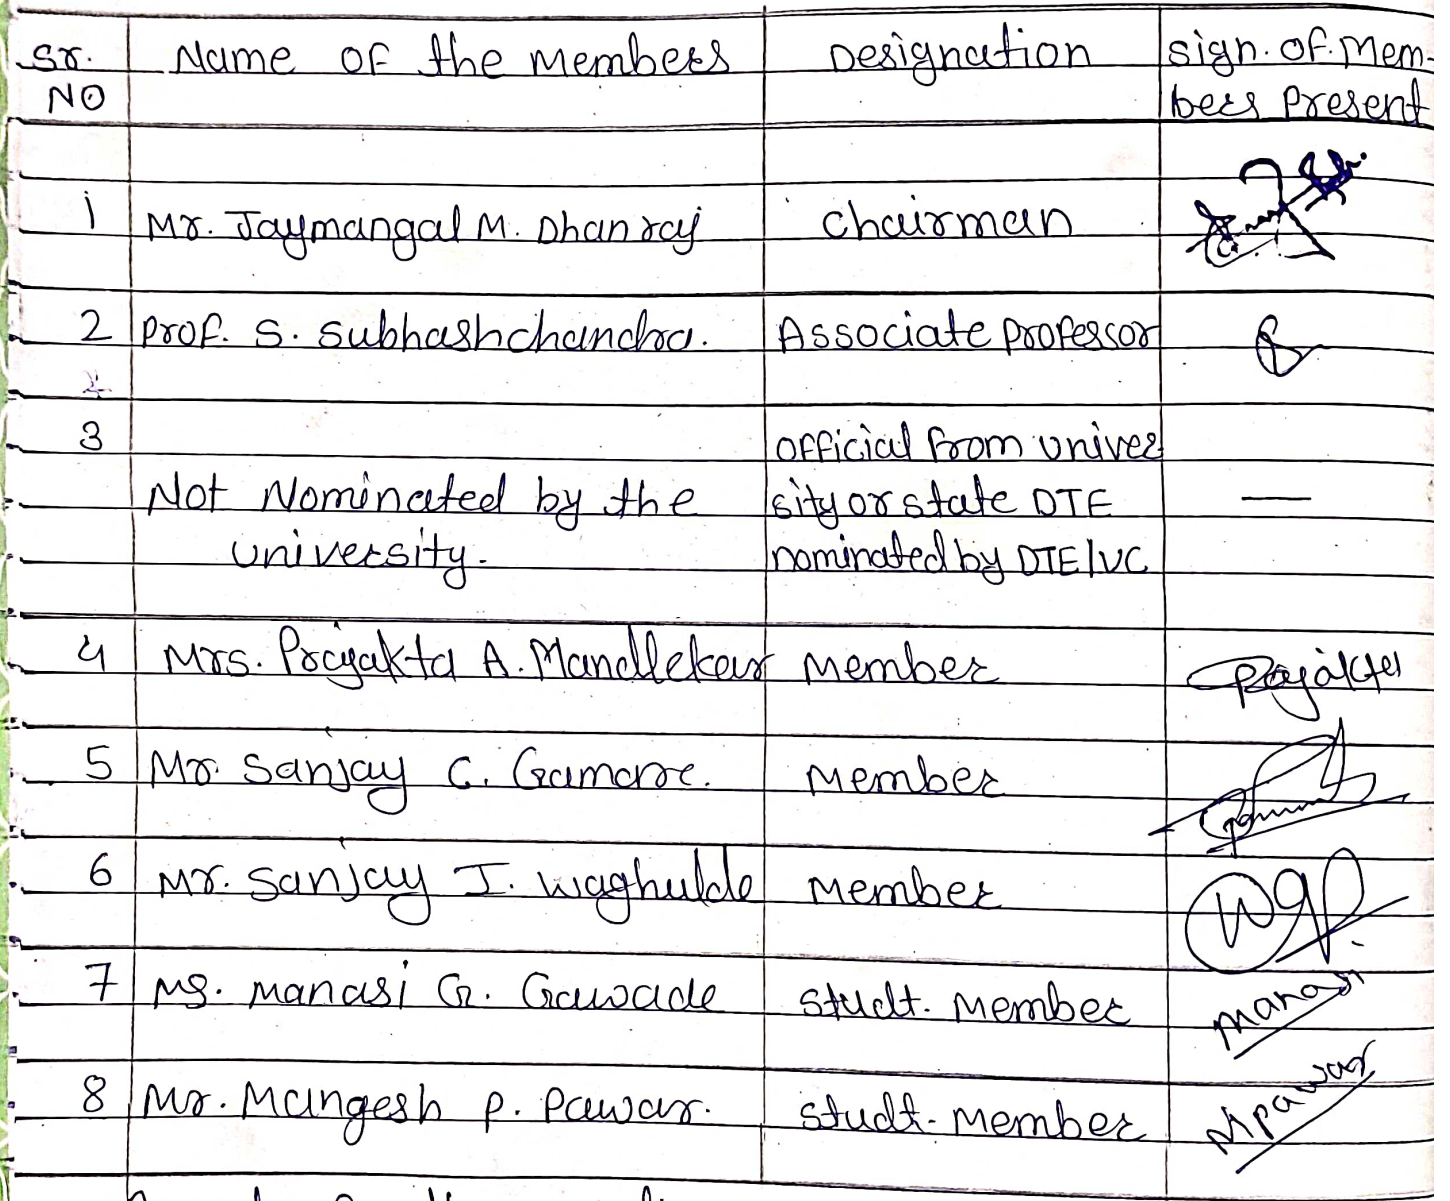 Sr. Name of the Members Designation Sign. of. Mem-
No bers Present
1 Mr. Jaymangal M. Dhanraj Chairman
2 Prof. S. Subhashchandra. Associate Professor
3 Official from univer
Not Nominated by the sity or state DTE —
university. nominated by DTE/VC
4 Mrs. Prajakta A. Mandlekar Member Prajakta
5 Mr. Sanjay C. Gamare. Member
6 Mr. Sanjay I. Waghulde Member
7 Ms. Manasi G. Gawade Studt. Member Manasi
8 Mr. Mangesh P. Pawar. Studt. Member MPawar